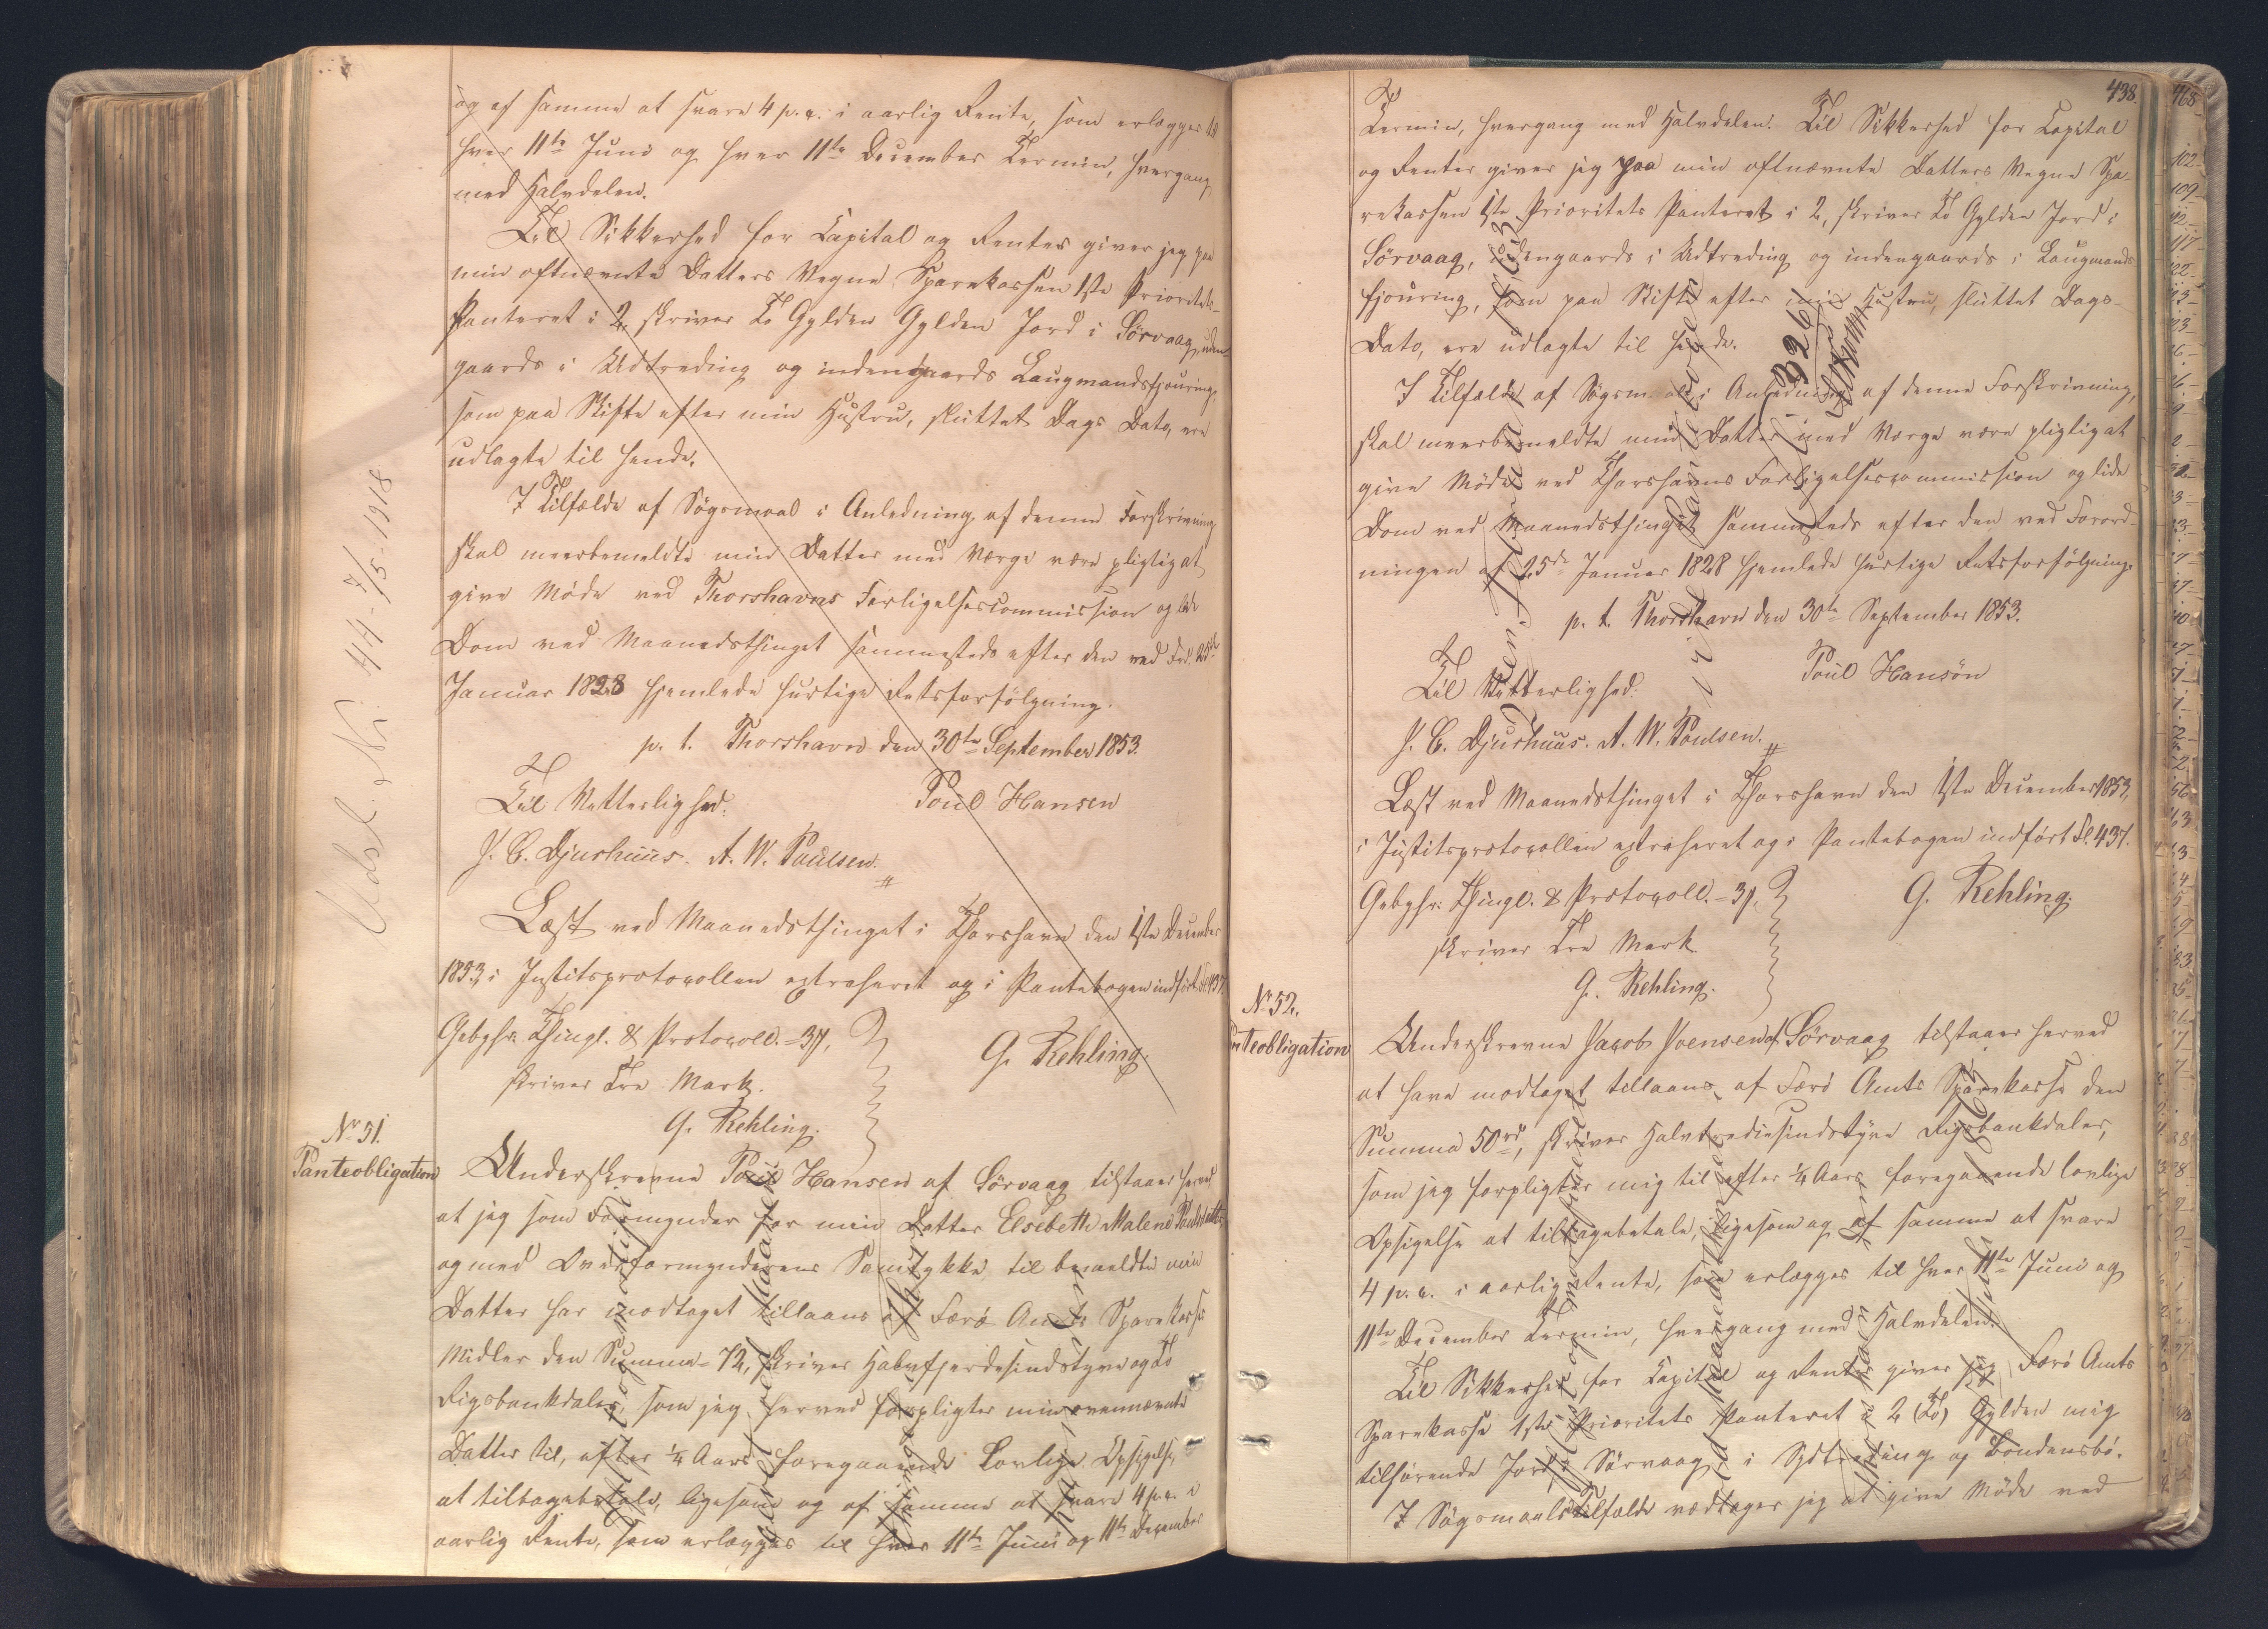 og af samme at svare 4 p. c. i aarlig Rente, som erlægges til
hver 11te Juni og hver 11te December Termin, hvergang
med Halvdelen.
Til Sikkerhed for Capital og Renter giver jeg paa
min oftnævnte Datters Vegne Sparekassen 1ste Prioritets
Panteret i 2, skriver To Gylden Gylden Jord i Sørvaag, uden-
gaards i Udtreding og indengaards Laugmandsfjouring,
som paa Skifte efter min Hustru, sluttet Dags Dato, ere
udlagte til hende.
I Tilfælde af Søgsmaal i Anledning af denne Forskrivning
skal meerbemeldte min Datter med Værge være pligtig at
give Møde ved Thorshavns Forligelsescommission og lide
Dom ved Maanedsthinget sammesteds efter den ved Frd. 25de
Januar 1828 hjemlede hurtige Retsforfølgning.
p. t. Thorshavn den 30te September 1853.
Til Vitterlighed: Poul Hansen
J. C. Djurhuus. A. W. Poulsen.
Læst ved Maanedsthinget i Thorshavn den 1ste December
1853, i Justitsprotocollen extraheret og i Pantebogen indført Fol. 437.
Gebyhr: Thingl. & Protocoll. = 3 ,
skriver Tre Mark. G. Rehling.
G. Rehling.
Nr 51.
Panteobligation
Underskrevne Poul Hansen af Sørvaag tilstaaer herved
at jeg som Formynder for min Datter Elsebeth Malene Poulsdatter
og med Overformynderens Samtykke til bemeldte min
Datter har modtaget tillaans af Færø Amts Sparekasses
Midler den Summa = 72, skriver Halvfjerdesindstyve og To
Rigsbankdaler, som jeg herved forpligter min ovennævnte
Datter til, efter ¼ Aars foregaaende Lovlige Opsigelse,
at tilbagebetale, ligesom og af samme at svare 4 p. c. i
aarlig Rente, som erlægges til hver 11te Juni og 11te December
438.
Termin, hvergang med Halvdelen. Til Sikkerhed for Capital
og Renter giver jeg paa min oftnævnte Datters Vegne Spa-
rekassen 1ste Prioritets Panteret i 2, skriver To Gylden Jord i
Sørvaag, udengaards i Udtreding og indengaards i Laugmands
fjouring, som paa Skifte efter min Hustru, sluttet Dags
Dato, ere udlagte til hende.
I Tilfælde af Søgsmaal i Anledning af denne Forskrivning,
skal meerbemeldte min Datter med Værge være pligtig at
give Møde ved Thorshavns Forligelsescommission og lide
Dom ved Maanedsthinget sammesteds efter den ved Forord-
ningen af 25de Januar 1828 hjemlede hurtige Retsforfølgning.
p. t. Thorshavn den 30te September 1853.
Til Vitterlighed: Poul Hansøn
J. C. Djurhuus. A. W. Poulsen.
Læst ved Maanedsthinget i Thorshavn den 1ste December 1853,
i Justitsprotocollen extraheret og i Pantebogen indført Fol. 437.
Gebyhr: Thingl. & Protocoll. = 3 , G. Rehling.
skriver Tre Mark
G. Rehling.
Nr 52.
Panteobligation
Underskrevne Jacob Joensen af Sørvaag tilstaaer herved
at have modtaget tillaans af Færø Amts Sparekasse den
Summa 50 rd, skriver Halvtrediesindstyve Rigsbankdaler,
som jeg forpligter mig til efter ¼ Aars foregaaende lovlige
Opsigelse at tilbagebetale, ligesom og af samme at svare
4 p. c. i aarlig Rente, som erlægges til hver 11te Juni og
11te December Termin, hvergang med Halvdelen.
Til Sikkerhed for Capital og Renter giver jeg Færø Amts
Sparekasse 1ste Prioritets Panteret i 2 (To) Gylden mig
tilhørende Jord i Sørvaag, i Sydtreding og Bondensbø.
I Søgsmaalstilfælde vedtager jeg at give Møde ved